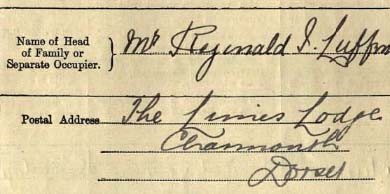 Name of Head
of Family or
Separate Occupier.
Mr Reginald J. Luffm
Postal Address
The Limes Lodge
Charmouth
Dorset